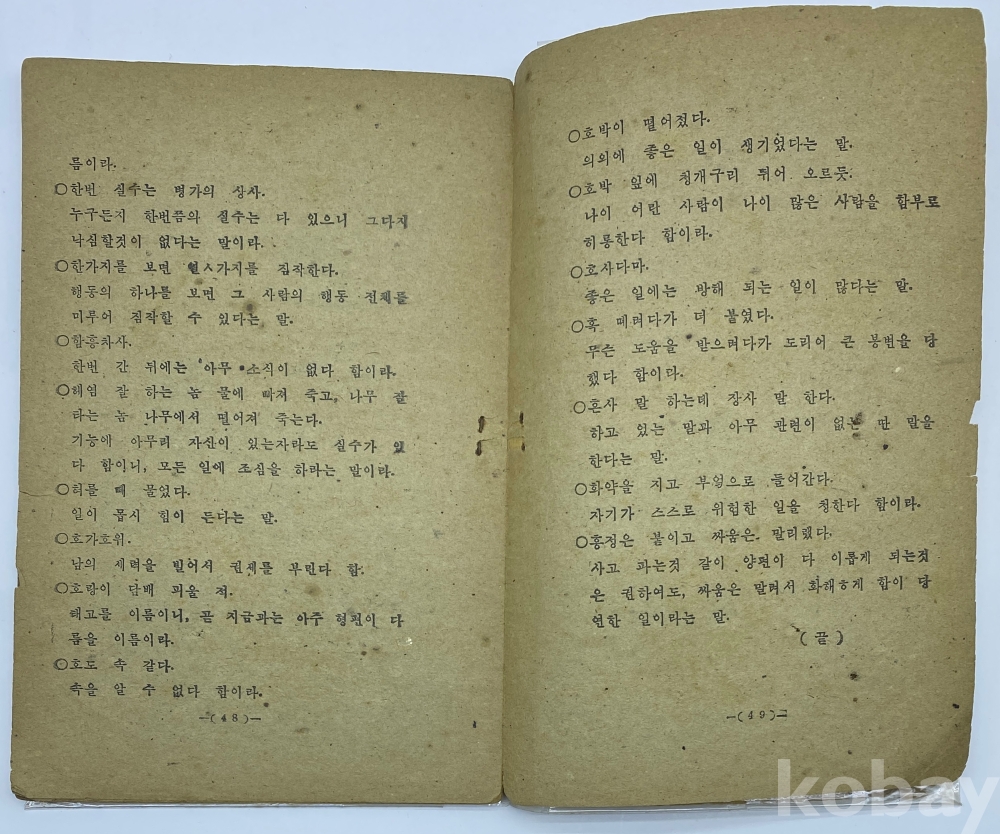 름이라.
○한번 실수는 병가의 상사.
누구든지 한번쯤의 실수는 다 있으니 그다지
낙심할것이 없다는 말이라.
○한가지를 보면 열 가지를 짐작한다.
행동의 하나를 보면 그 사람의 행동 전체를
미루어 짐작할 수 있다는 말.
○함흥차사.
한번 간 뒤에는 아무 소식이 없다 함이라.
○헤염 잘 하는 놈 물에 빠져 죽고, 나무 잘
라는 놈 나무에서 떨어져 죽는다.
기능에 아무리 자신이 있는자라도 실수가 있
다 함이니, 모든 일에 조심을 하라는 말이라.
○혀를 빼 물었다.
일이 몹시 힘이 든다는 말.
○호가호위.
남의 세력을 빌어서 권세를 부린다 함.
○호랑이 담배 피울 적.
태고를 이름이니, 곧 지금과는 아주 형편이 다
름을 이름이라.
○호도 속 같다.
속을 알 수 없다 함이라.
—(48)—
○호박이 떨어졌다.
의외에 좋은 일이 생기었다는 말.
○호박 잎에 청개구리 뛰어 오르듯.
나이 어린 사람이 나이 많은 사람을 함부로
히롱한다 함이라.
○호사다마.
좋은 일에는 방해 되는 일이 많다는 말.
○혹 떼려다가 더 붙였다.
무슨 도움을 받으려다가 도리어 큰 봉변을 당
했다 함이라.
○혼사 말 하는데 장사 말 한다.
하고 있는 말과 아무 관련이 없는 딴 말을
한다는 말.
○화약을 지고 부엌으로 들어간다.
자기가 스스로 위험한 일을 청한다 함이라.
○흥정은 붙이고 싸움은 말리랬다.
사고 파는것 같이 양편이 다 이롭게 되는것
은 권하여도, 싸움은 말려서 화해하게 함이 당
연한 일이라는 말.
(끝)
—(49)—
kobay